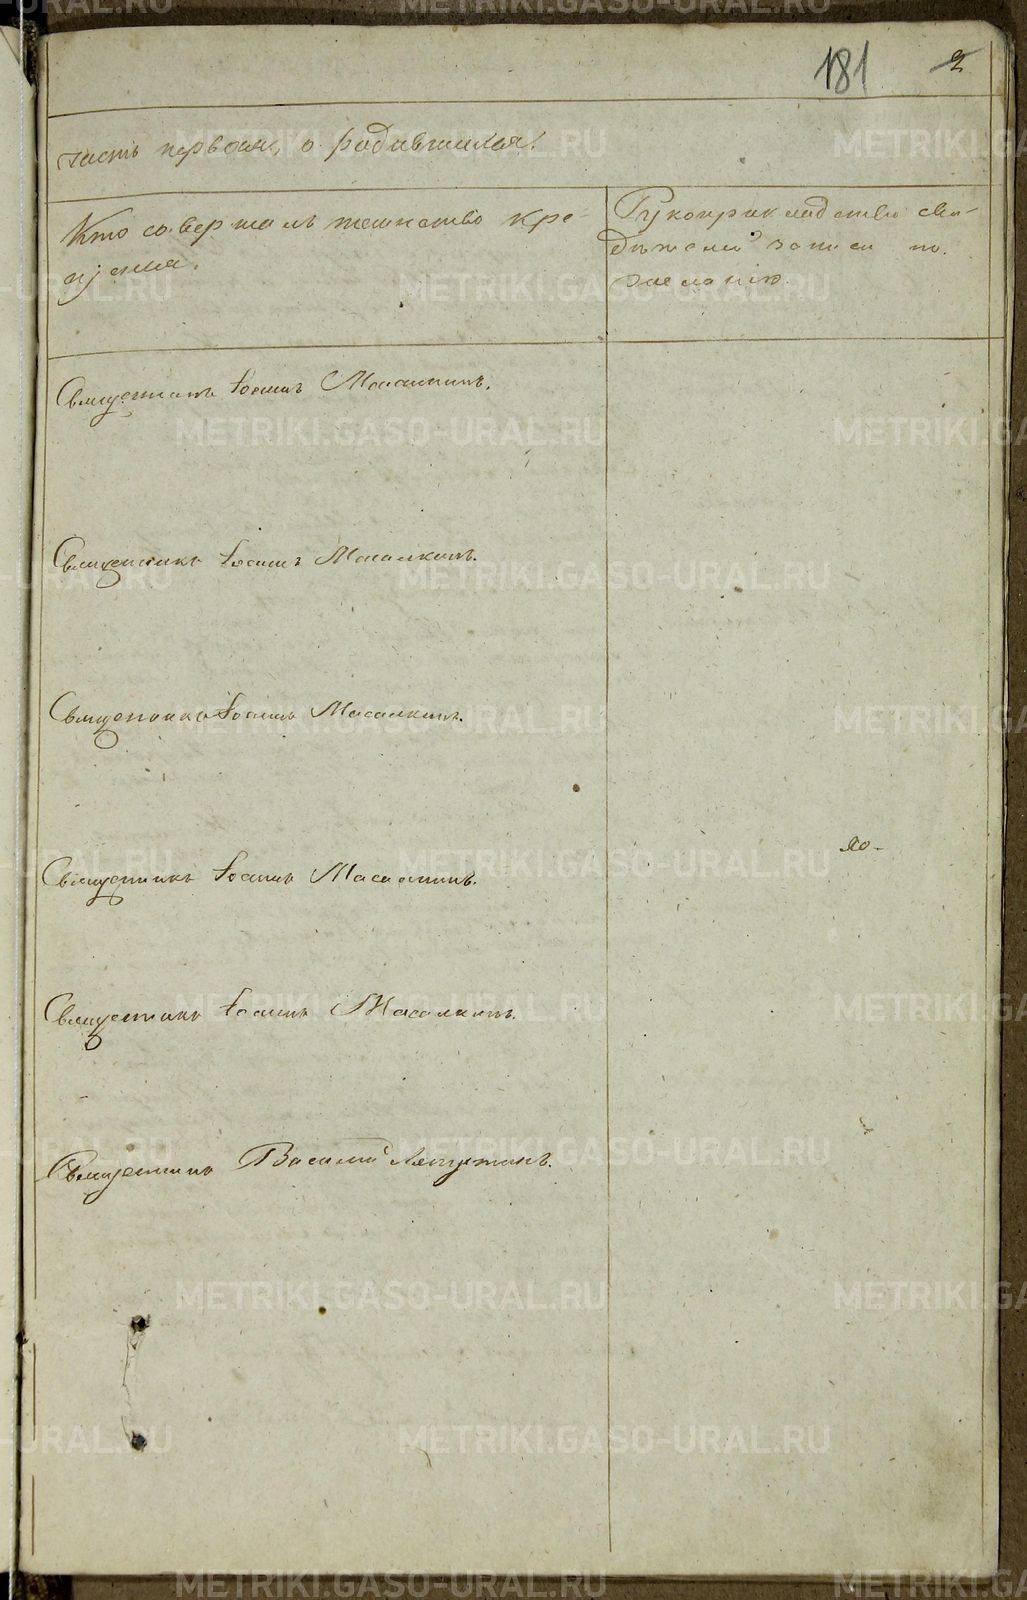 181 2
часть первая, о родившихся.
Кто совершалъ таинство кре-
щенія.
Рукоприкладство сви-
дѣтелей записи по
желанію.
Священникъ Іоаннъ Масалкинъ.
Священникъ Іоаннъ Масалкинъ.
Священникъ Іоаннъ Масалкинъ.
Священникъ Іоаннъ Масалкинъ.
Священникъ Іоаннъ Масалкинъ.
Священникъ Василій
METRIKI.GASO-URAL.RU